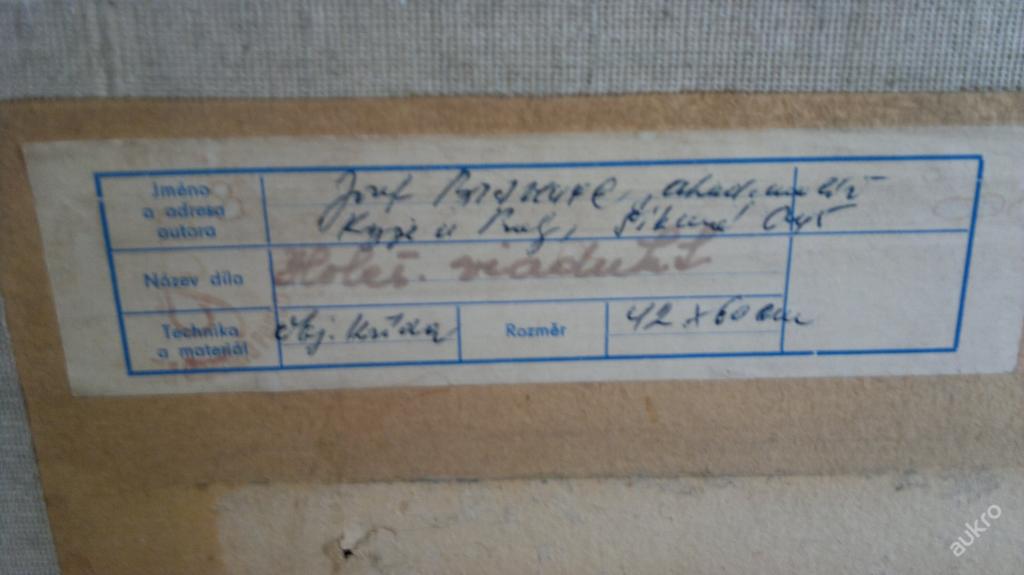 Jméno
a adresa
autora
Josef akad. malíř
Kyje u Prahy,
Název díla
Holeš. viadukt
Technika
a materiál
křída
Rozměr
42 x 60 cm
aukro